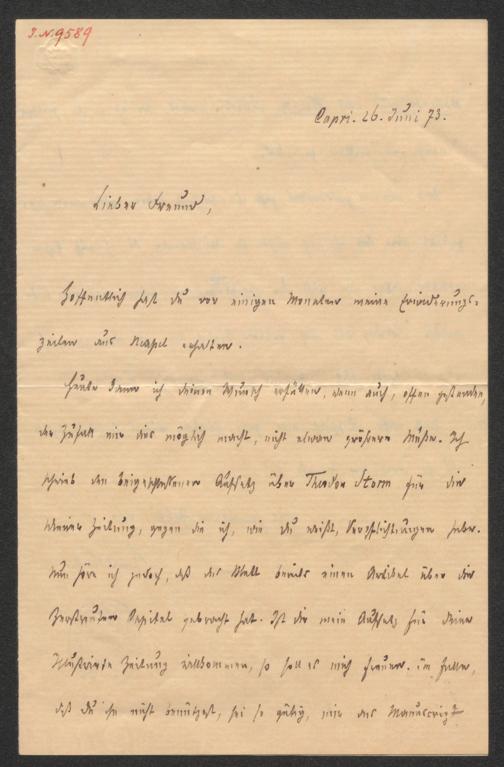 I.N. 9589
Capri. 26. Juni 73.
Lieber Freund,
Hoffentlich hast du vor einigen Monaten meine Erwiderungs-
zeilen aus Neapel erhalten.
Heute kann ich deinen Wunsch erfüllen, wenn auch, offen gestanden,
der Zufall mir dies möglich macht, nicht etwa größere Muße. Ich
schrieb den beigeschlossenen Aufsatz über Theodor Storm für die
Wiener Zeitung, gegen die ich, wie du weißt, Verpflichtungen habe.
Nun höre ich jedoch, daß das Blatt bereits einen Artikel über die
Zerstreuten Kapitel gebracht hat. Ist dir mein Aufsatz für deine
Illustrirte Zeitung willkommen, so soll es mich freuen. Im Falle,
daß du ihn nicht benützest, sei so gütig, mir das Manuscript